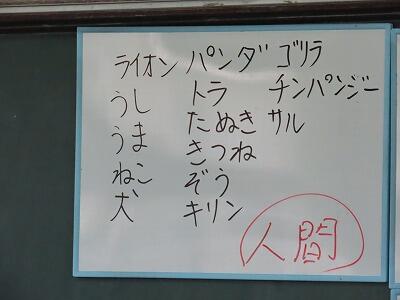 ライオン パンダ ゴリラ
うし トラ チンパンジー
うま たぬき サル
ねこ きつね
犬 ぞう
キリン
人間